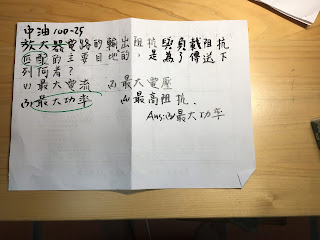 中油100-25
放大器電路的輸出阻抗與負載阻抗
匹配的主要目地的,是為了傳送下
列何者?
(1)最大電流 (2)最大電壓
(3)最大功率 (4)最高阻抗.
Ans:(3)最大功率